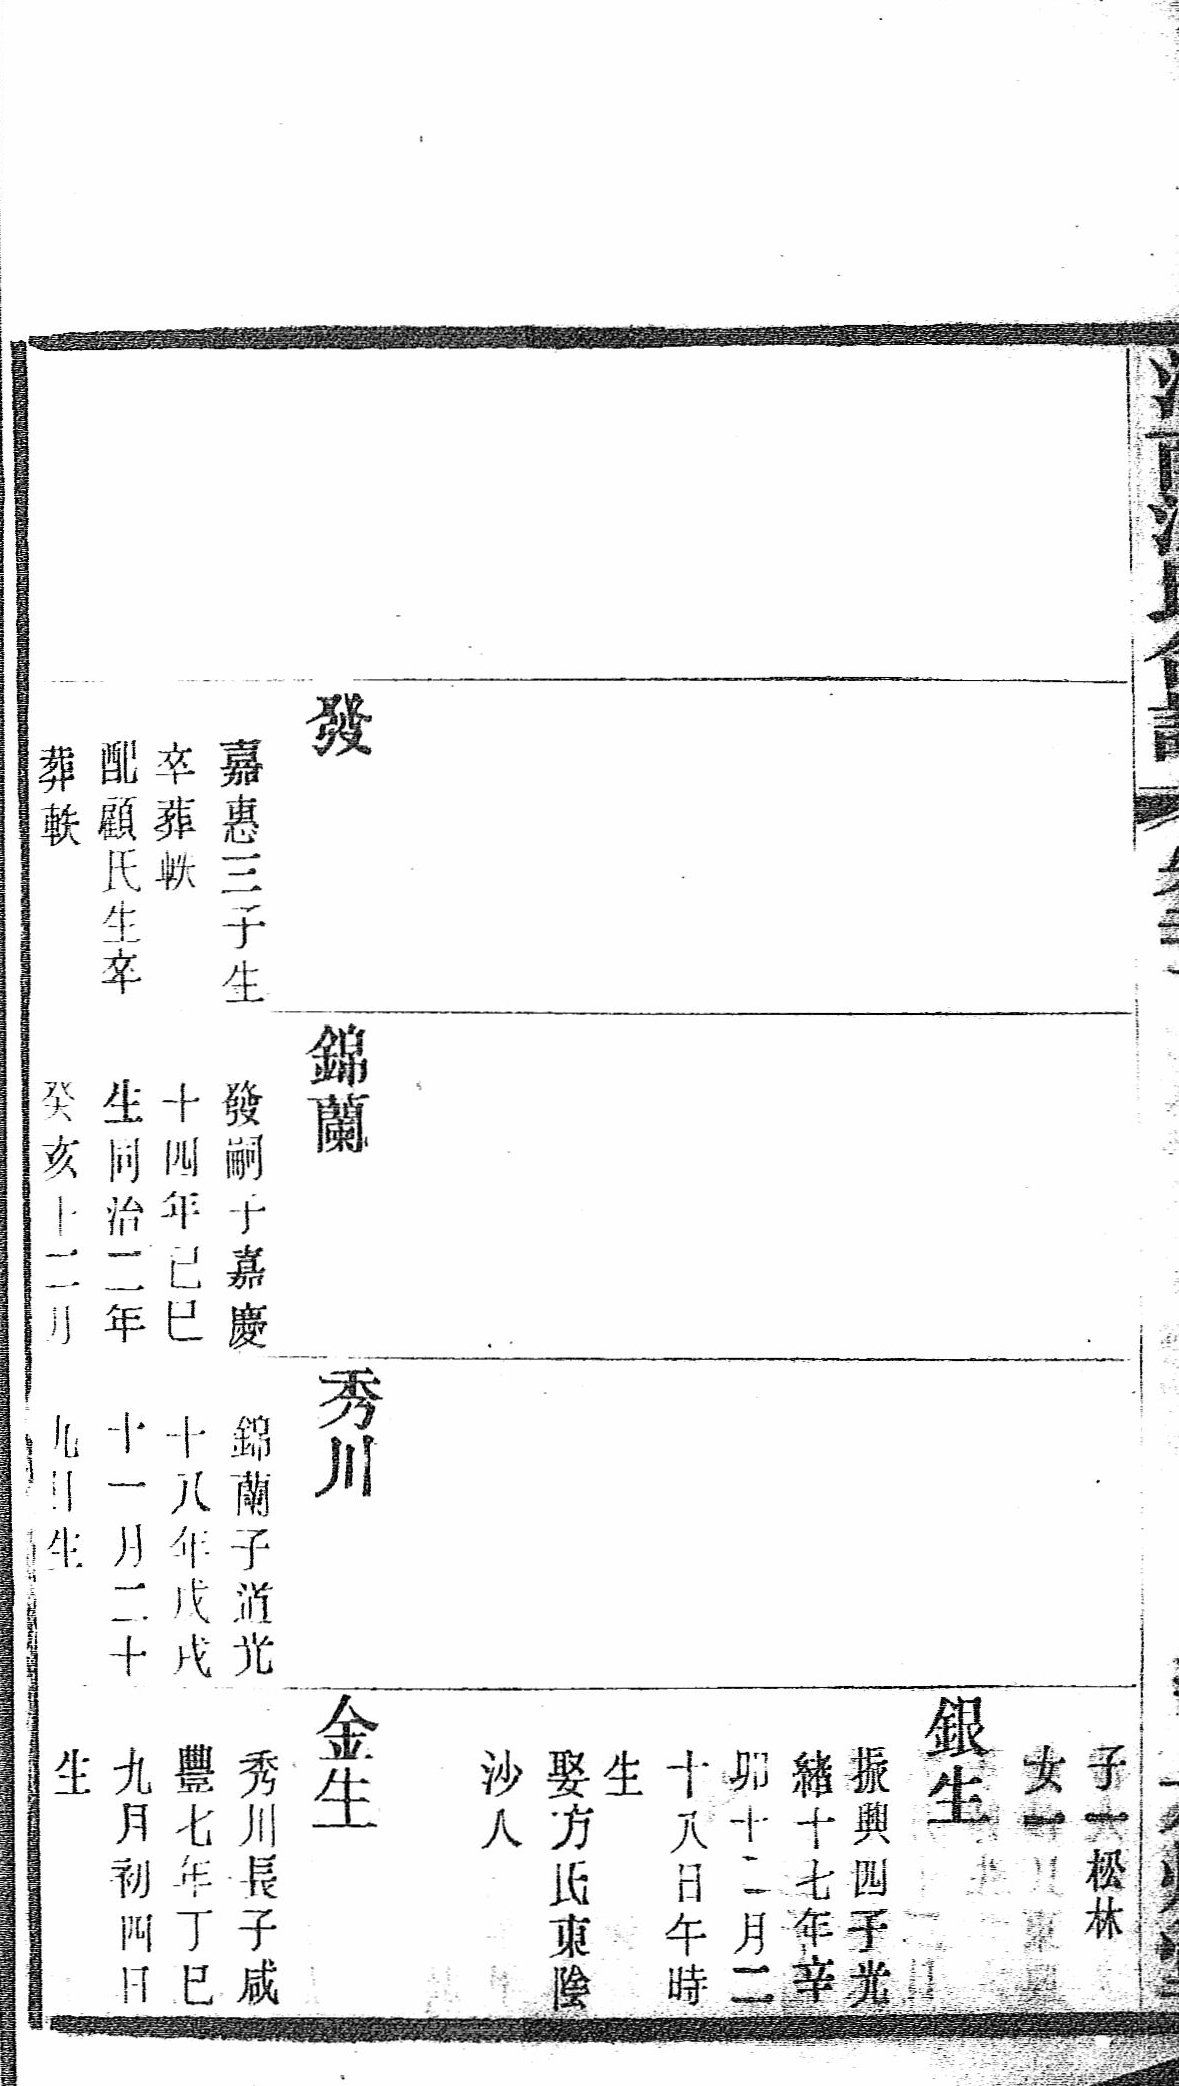 子一松林
女一
銀生
振興四子光
緒十七年辛
卯十二月二
十八日午時
生
娶方氏東陰
沙人
發
嘉惠三子生
卒葬軼
配顧氏生卒
葬軼
錦蘭
發嗣子嘉慶
十四年己巳
生同治二年
癸亥十二月
秀川
錦蘭子道光
十八年戊戌
十一月二十
九日生
金生
秀川長子咸
豐七年丁巳
九月初四日
生